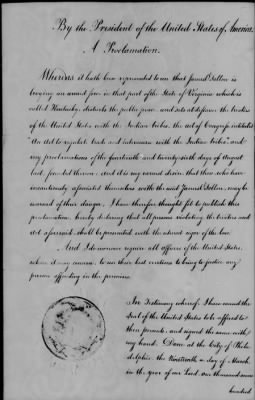 By the President of the United States of America.
A Proclamation.
Whereas it hath been represented to me that James O'Fallon is
levying an armed force in that part of the State of Virginia which is
called Kentucky, disturbs the public peace, and sets at defiance the treaties
of the United States with the Indian tribes, the act of Congress intituled
"An Act to regulate trade and intercourse with the Indian tribes" and
my proclamations of the fourteenth and twenty-sixth days of August
last founded thereon. And it is my earnest desire that those who have
incautiously associated themselves with the said James O'Fallon, may be
warned of their danger, I have therefore thought fit to publish this
proclamation, hereby declaring that all persons violating the treaties and
act aforesaid, shall be prosecuted with the utmost rigor of the law.
And I do moreover require all officers of the United States,
whom it may concern, to use their best exertions to bring to justice any
persons offending in the premises.
In Testimony whereof, I have caused the
Seal of the United States to be affixed to
these presents, and signed the same with
my hand. Done at the City of Phila-
delphia, the Nineteenth day of March,
in the year of our Lord, one thousand seven
hundred